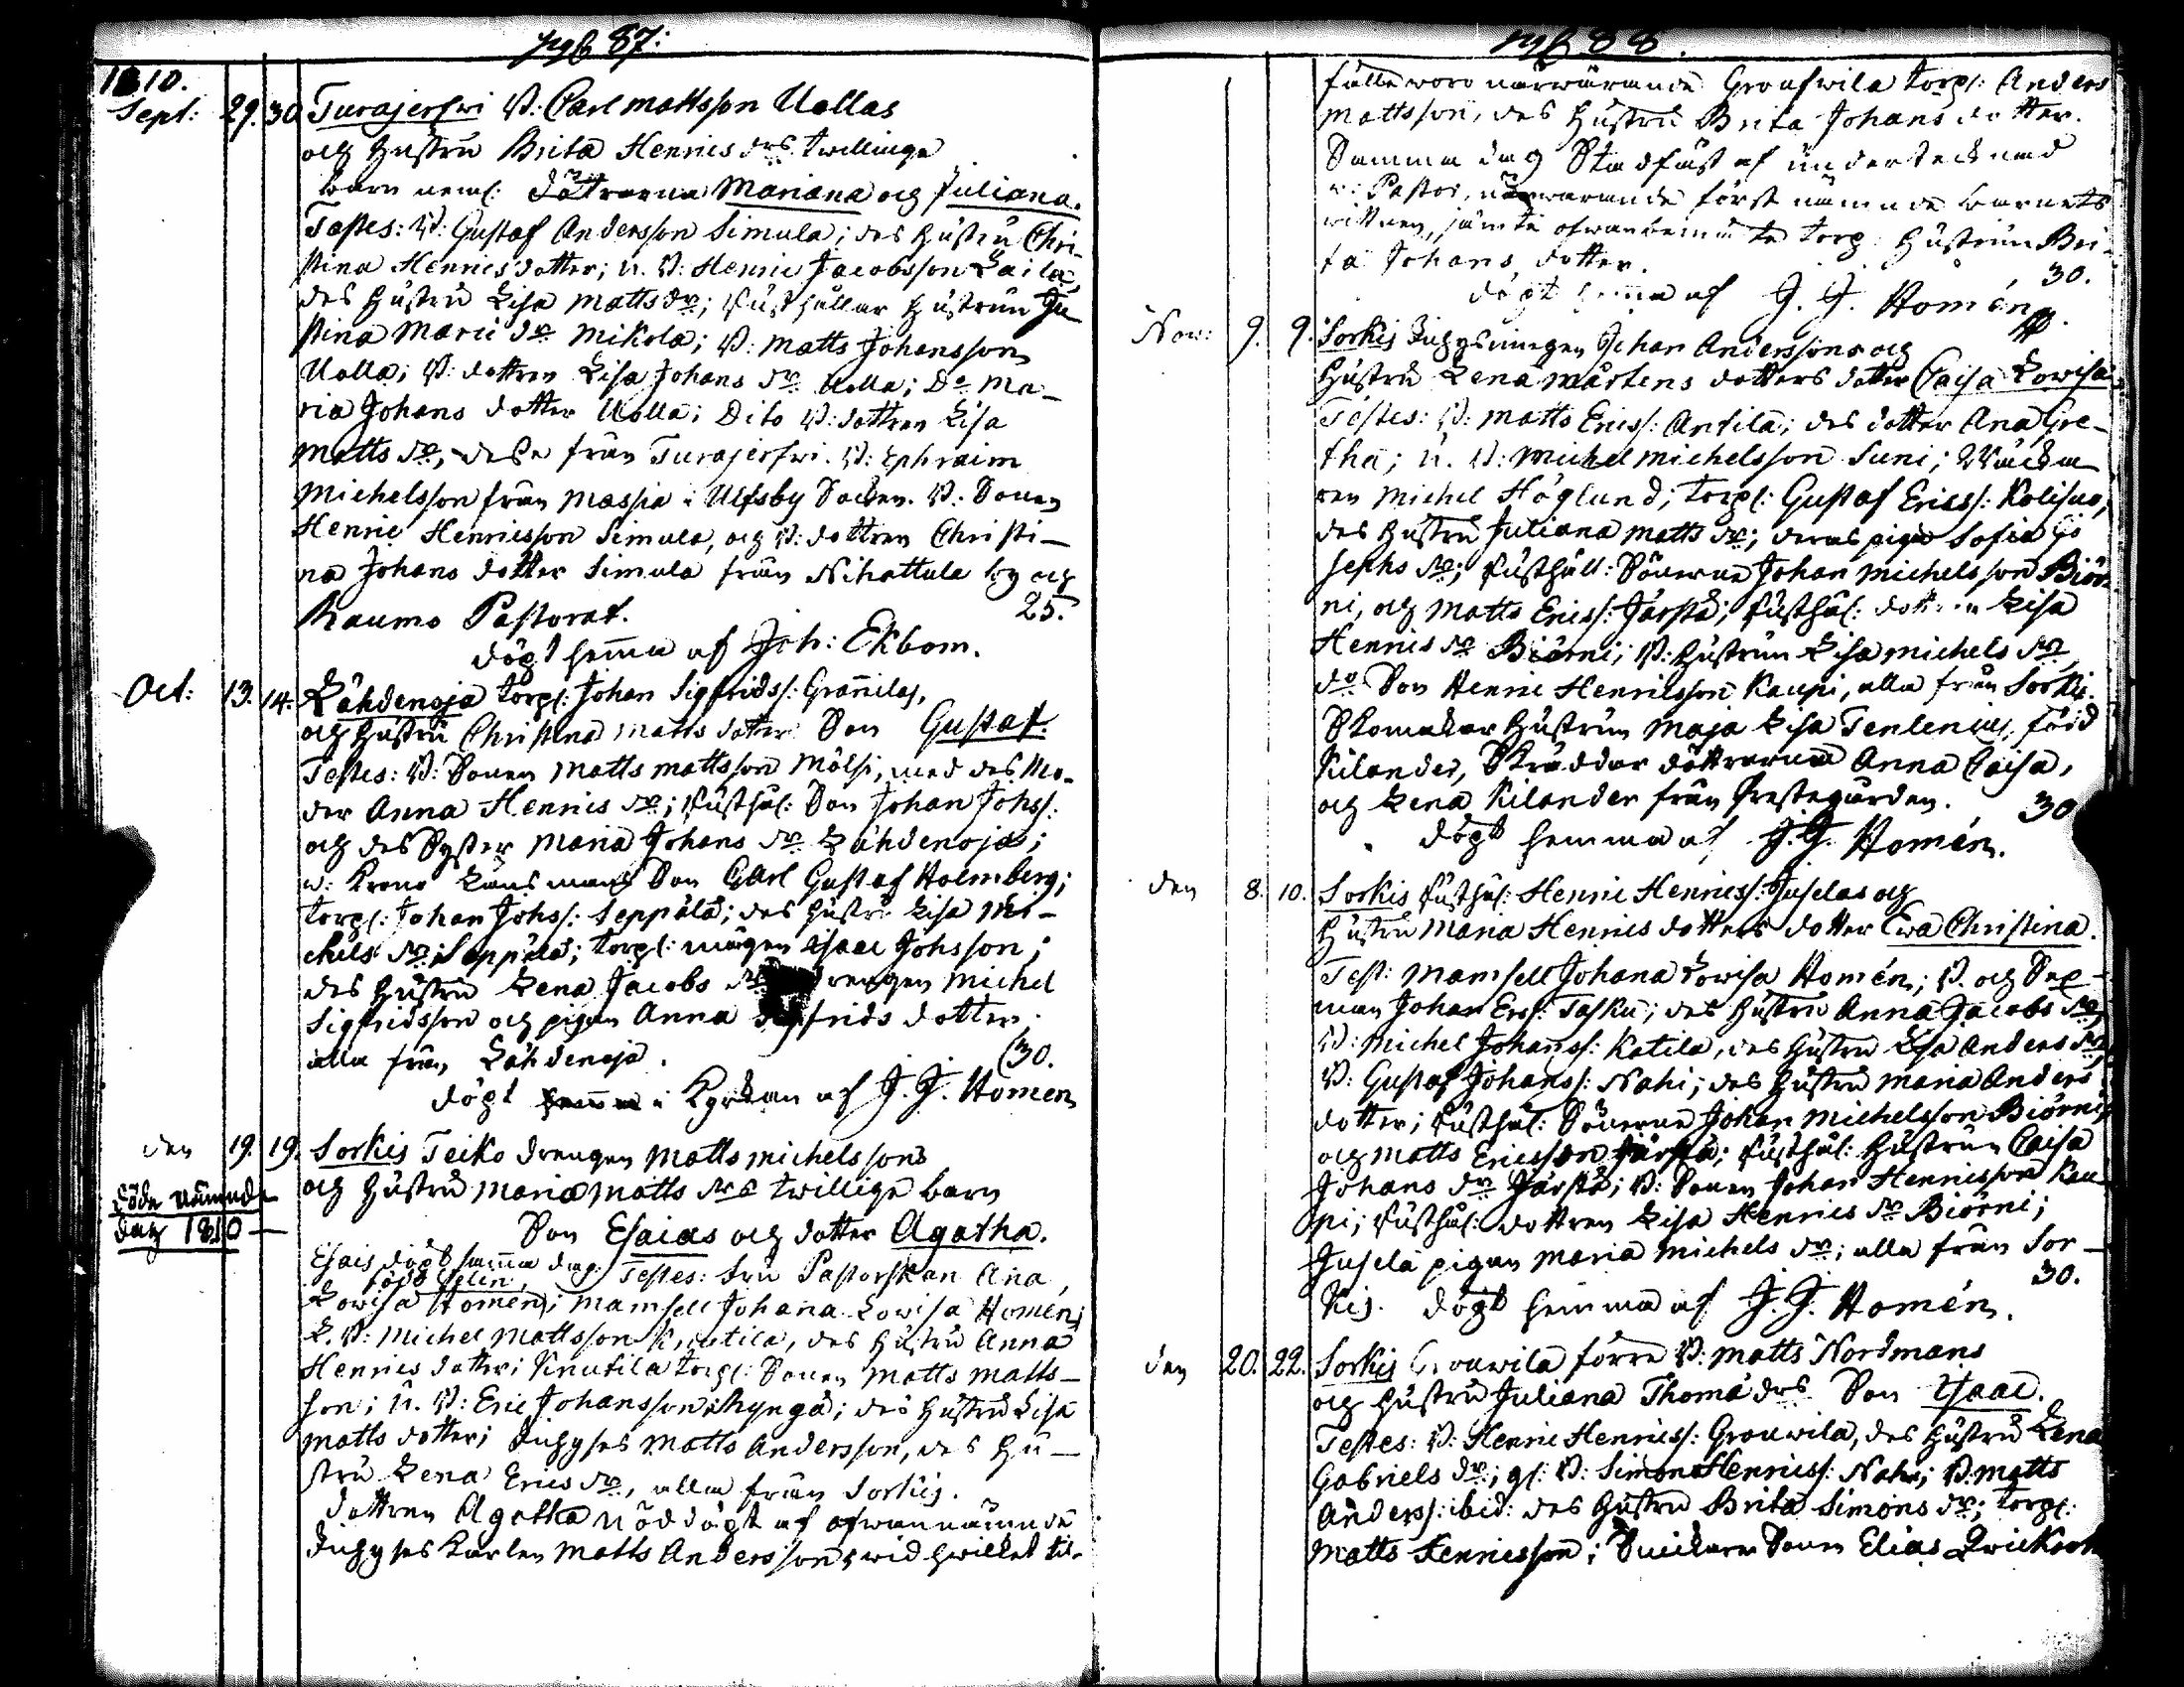 pag 87:
1810.
Sept: 29. 30. Turajerfwi B: Carl mattsson Uollas
och Hustru Brita Henrics drs twillinge
barn neml: döttrarna Mariana och Juliana.
Testes: B: Gustaf Andersson Simula; des hustru Chri-
stina Henrics dotter; u. B: Henric Jacobsson Laila,
des Hustru Lisa Matts dr; Rusthållar hustrun Ju
stina Marci dr Mikola; B: Matts Johansson
Uolla; B: dottren Lisa Johans dr Uolla; Do Ma-
ria Johans dotter Uolla; Dito B: dottren Lisa
Matts dr, desse från Turajerfwi. B: Ephraim
Michelsson från Massia i Ulfsby Socken. B. Sonen
Henric Henricsson Simula, och B: dottren Christi-
na Johans dotter Simula från Nihattula by och
Raumo Pastorat. 25.
döpt hemma af Joh: Ekbom.
Oct: 13. 14. Lähdenoja torp: Johan Sigfridss: Grannilas,
och Hustru Christina Matts dotter Son Gustaf.
Testes: B: Sonen Matts mattsson Mölsi, med des Mo-
der Anna Henrics dr; Rusthål: Son Johan Johss:
och des Syster Maria Johans dr Lähdenoja;
v: Krono Länsmans Son Carl Gustaf Holmberg;
torp: Johan Johss: Seppälä; des hustru Lisa Mi-
chels dr Seppälä; torp: mågen Isaac Johsson;
des Hustru Lena Jacobs dr drengen Michel
Sigfridsson och pigan Anna Sigfrids dotter.
alla från Lähdenoja. 30.
döpt hemma i Kyrckan af J. J. Homén
den 19. 19. Sorkis Teiko drengen Matts michelssons
och Hustru Maria Matts drs twillige barn
föde nämnde
dag 1810
Son Esaias och dotter Agatha.
Esais döpt samma dag. Testes: Fru Pastorskan Ana
Lowisa Homén, född Gelin; Mamsell Johana Lowisa Homén;
L. B: Michel Mattsson Knutila, des Hustru Anna
Henrics dotter; Knutila torp: Sonen Matts Matts-
son; u. B: Eric Johansson Rynga; des Hustru Lisa
Matts dotter; Inhyses Matts Andersson, des Hu-
stru Lena Erics dr, alla från Sorkis.
dottren Agatha nöddöpt af ofwannämnde
Inhyses Karlen Matts Andersson, wid hwilket til-
pag 88.
fälle woro närwarande Grouwila torp: Anders
Mattsson, des Hustru Brita Johans dotter.
Samma dag Stadfäst af undertecknad
v: Pastor, närwarande först nämnde barnets
wittnen, jämte ofwanbemälte torp: Hustrun Bri-
ta Johans dotter. 30.
döpt hemma af J. J. Homén
Nov: 9. 9. Sorkis Inhysningen Johan Anderssons och
Hustru Lena Mårtens dotters dotter Caisa Lowisa
Testes: B: Matts Ericss: Antila; des dotter Ana Gre-
tha; u. B: Michel michelsson Suni;
Michel Höglund; torp: Gustaf Ericss: Kolisuo,
des Hustru Juliana Matts dr; deras piga Sofia Jo
sephs dr; Rusthåll: Sönerne Johan Michelsson Biör-
ni, och Matts Ericss: Järstä; Rusthål: dottren Lisa
Henrics dr Biörni; B: hustrun Lisa michels dr
do Son Henric Henricsson Kaupi, alla från Sorkis.
Skomakar Hustrun Maja Lisa Tenlenius, född
Kilander, Skräddar döttrarna Anna Caisa,
och Lena Kilander från Prestegården. 30
döpt hemma af J. J. Homén.
den 8. 10. Sorkis Rusthål: Henric Henricss: Juselas och
Hustru Maria Henrics dotters dotter Ewa Christina.
Test: Mamsell Johana Lowisa Homén; B. och Sex-
man Johan Erss: Tasku; des Hustru Anna Jacobs dr;
B: Michel Johanss: Katila, des Hustru Lisa Anders dr
B: Gustaf Johanss: Nahi; des Hustru Maria Anders
dotter; Rusthål: Sönerne Johan Michelsson Biörni,
och Matts Ericsson Järstä; Rusthål: Hustrun Caisa
Johans dr Järstä; B: Sonen Johan Henricsson Kau
pi; Rusthål: dottren Lisa Henrics dr Biörni;
Jusela pigan Maria Michels dr; alla från Sor-
kis. 30.
döpt hemma af J. J. Homén.
den 20. 22. Sorkis Grouwila förre B: Matts Nordmans
och Hustru Juliana Thomæ drs Son Isaac.
Testes: B: Henric Henricss: Grouwila, des Hustru Lena
Gabriels dr; gl: B: Simon Henricss: Nahi; B: Matts
Anderss: ibid: des Hustru Brita Simons dr; torp:
Matts Henricsson; Snickare Sonen Elias